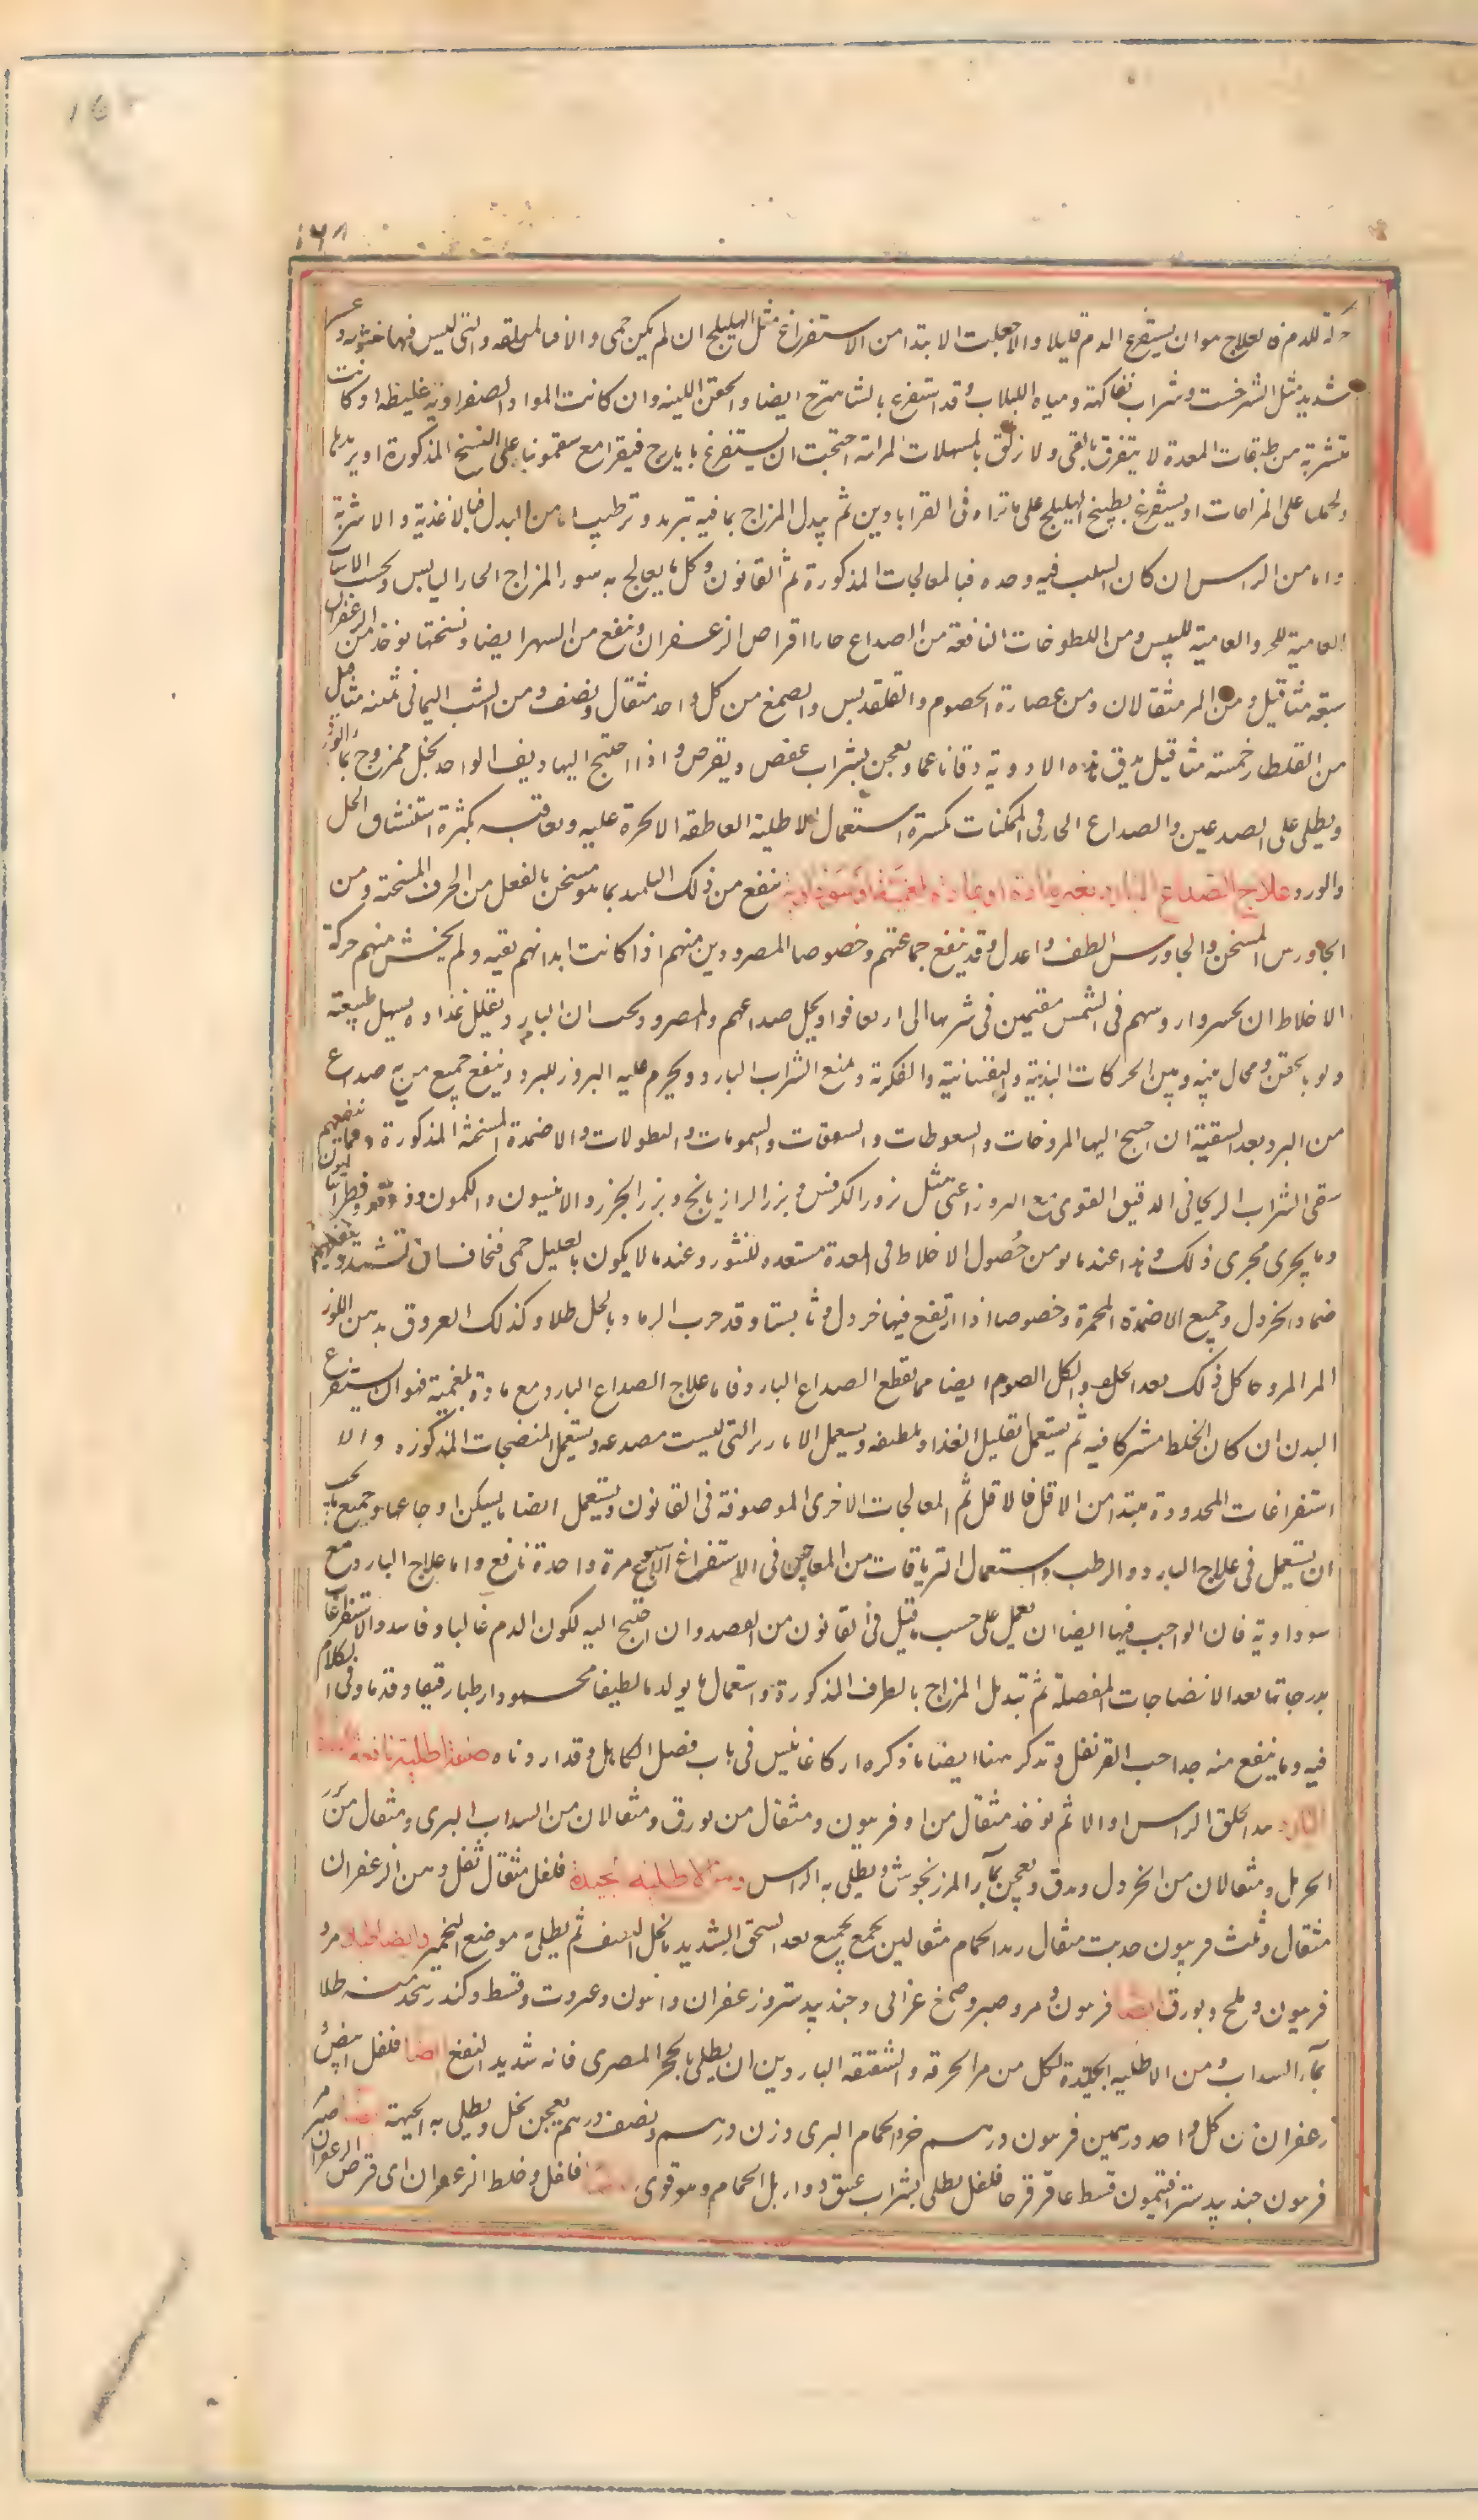 ١٦٨
للدم فالعلاج هو ان يستفرغ الدم قليلا والا جعلت الابتدا من الاستفراغ مثل الهليلج ان لم يكن حمى والا فبالمزلقة والتى ليس فيها خشونة وعسر
شديد مثل الشيرخشت وشراب الفاكهة ومياه اللبلاب وقد استفرغ بالشاهترج ايضا والحقن اللينة وان كانت المواد الصفراوية غليظة او كانت
متشربة من طبقات المعدة لا يتفرق بالقى ولا زلق بالمسهلات المرانة احتجت ان يستفرغ بايارج فيقرا مع سقمونيا على النسخ المذكورة او يريدها
على المزاجات او يستفرغ بطبيخ الهليلج على ما تراه فى القراباذين ثم يبدل المزاج بما فيه تبريد وترطيب اما من البدل فبالاغذية والاشربة
واما من الراس ان كان السبب فيه وحده فبالمعالجات المذكورة ثم القانون وكل ما يعالج به سوء المزاج الحار اليابس وبحسب الاسباب
العامية للحر والعامية لليبس ومن اللطوخات النافعة من الصداع حارا اقراص الزعفران وينفع من السهر ايضا ونسختها يوخذ من الزعفران
سبعة مثاقيل ومن المر مثقالان ومن عصارة الحصرم والقلقديس والصمغ من كل واحد مثقال ونصف ومن الشب اليمانى ثمنه مثاقيل
من القلقطار خمسة مثاقيل يدق هذه الادوية دقا ناعما ويعجن بشراب عفص ويقرص واذا احتيج اليها ديف الواحد بخل ممزوج بماء الورد
ويطلى على الصدغين والصداع الحار فى الممكنات كسرة استعمال الاطلية العاطفة الابخرة عليه وتعاقبه بكثرة استنشاق الخل
والورد علاج الصداع البارد بغير مادة او بمادة بلغمية او سوداوية ينفع من ذلك التكميد بما هو مسخن بالفعل من الخرق المسخنة ومن
الجاورس المسخن والجاورس الطف واعدل وقد ينفع جماعتهم وخصوصا المصرودين منهم اذا كانت ابدانهم نقيه ولم يخش منهم حركة
الاخلاط ان يحسروا روسهم فى الشمس مقيمين فى شرها الى ان يعافوا ويحل صداعهم والمصرود يجب ان البارد تقليل غذاوه ويسهل طبيعته
ولو بحقن ومحال بينه وبين الحركات البدنية والنفسانية والفكرية ويمنع الشراب البارد ويحرم عليه البروز للبرد وينفع جميع من به صداع
من البرد بعد التنقية ان احتيج اليها المروخات والسعوطات والسعوقات والشمومات والنطولات والاضمدة المسخنة المذكورة ومما ينفعهم
سقى الشراب الريحانى الدقيق القوى مع البروز اعنى مثل بزور الكرفس وبزر الرازيانج وبزر الجزر والانيسون والكمون ودوقو وفطراساليون
وما يجرى مجرى ذلك وهذا عند ما يومن حصول الاخلاط فى المعدة مستعدة للثور وعند ما لا يكون بالعليل حمى فيخاف ان تشتد وينفعهم
ضماد الخردل وجميع الاضمدة المحمرة وخصوصا اذا ارتفع فيها خردل وثابسيا وقد جرب الرماد بالخل طلا وكذلك العروق بدهن اللوز
المر المروحا كل ذلك بعد الحلق والكل الصوم ايضا مما يقطع الصداع البارد فاما علاج الصداع البارد مع مادة بلغمية فهو ان يستفرغ
البدن ان كان الخلط مشتركا فيه ثم يستعمل تقليل الغذا وتلطيفه ويستعمل الابازير التى ليست مصدعة ويستعمل المنضجات المذكورة والا
استفراغات المحدودة مبتدا من الاقل فالاقل ثم المعالجات الاخرى الموصوفة فى القانون ويستعمل ايضا ما يسكن اوجاعها وجميع ما يجب
ان يستعمل فى علاج البارد والرطب واستعمال الترياقات من المعاجين فى الاستفراغ الاسبوع مرة واحدة نافع واما علاج البارد مع
سوداوية فان الواجب فيها ايضا ان يعمل على حسب ما قيل فى القانون من الفصد وان احتيج اليه لكون الدم غالبا وفاسد والاستفراغات
بدرجاتها بعد الانضاجات المفصلة ثم تبديل المزاج بالطرف المذكورة واستعمال ما يولد ما لطيفا محمودا رطبا رقيقا وقد وفى الكلام
فيه وما ينفع منه جدا حب القرنفل وتذكر هنا ايضا ما ذكره اركاغانيس فى باب فصل الكاهل وقد اوردناه صفة اطلية نافعة
البارد بعد الحلق الراس اولا ثم يوخذ مثقال من اوفربيون ومثقال من بورق ومثقالان من السداب البرى ومثقال من بزر
الحرمل ومثقالان من الخردل ويدق ويعجن بماء المرزنجوش ويطلى به الراس ومن الاطلية الجيدة فلفل مثقال ثفل دهن الزعفران
مثقال وثلث فربيون حديث مثقال زبد الحمام مثقالين يجمع الجميع بعد السحق الشديد بالخل الثقيف ثم يطلى به موضع التخمير وايضا طلا مر و
فربيون وملح وبورق ايضا فربيون ومر وصبر وصمغ عربى وجندبيدستر وزعفران وافيون وعنزروت وقسط وكندر يتخذ منه طلا
بماء السداب ومن الاطليه الجيدة لكل من مر الخرقة والشقيقة الباردين ان يطلى بالحجر المصرى فانه شديد النفع ايضا فلفل ابيض
زعفران من كل واحد درهمين فربيون درهم خرو الحمام البرى وزن درهم ونصف درهم يعجن بخل ويطلى به الجبهة ايضا صبر
فربيون جندبيدستر افتيمون قسط عاقرقرحا فلفل يطلى بشراب عتيق ودار بل الحمام وهو قوى ايضا فاخل وخلط الزعفران اى قرص الزعفران